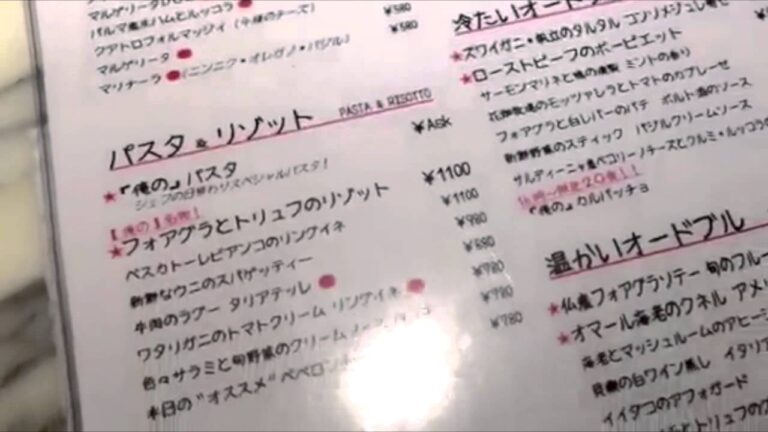 マルゲリータD
¥580
パルマ産生ハムとルッコラ
¥580
クアトロフォルマッジィ (4種のチーズ)
マルゲリータ
マリナーラ (ニンニク・オレガノ・バジル)
パスタ & リゾット PASTA & RISOTTO
★『俺の』パスタ ¥Ask
シェフの日替わりスペシャルパスタ!
【俺の】名物!
★フォアグラとトリュフのリゾット ¥1100
ペスカトーレビアンコのリングイネ ¥1100
新鮮なウニのスパゲッティー ¥980
牛肉のラグー タリアテッレ ¥880
ワタリガニのトマトクリーム リングイネ ¥780
色々サラミと旬野菜のクリームソース ¥780
本日の"オススメ"ペペロン ¥780
冷たいオード
★ズワイガニ・帆立のタルタル コンソメジュレ寄せ
★ローストビーフのポーピエット
サーモンマリネと鴨の燻製 ミントの香り
モッツァレラとトマトのカプレーゼ
フォアグラと白レバーのパテ ポルト酒のソース
新鮮野菜のスティック バジルクリームソース
サルディーニャ産ペコリーノチーズとクルミ・ルッコラの
限定20食!!
『俺の』カルパッチョ
温かいオードブル
★仏産フォアグラソテー 旬のフルー
★オマール海老のクネル アメリ
海老とマッシュルームのアヒージ
貝類の白ワイン蒸し イタリア
イイダコのアフォガード
とトリュフの